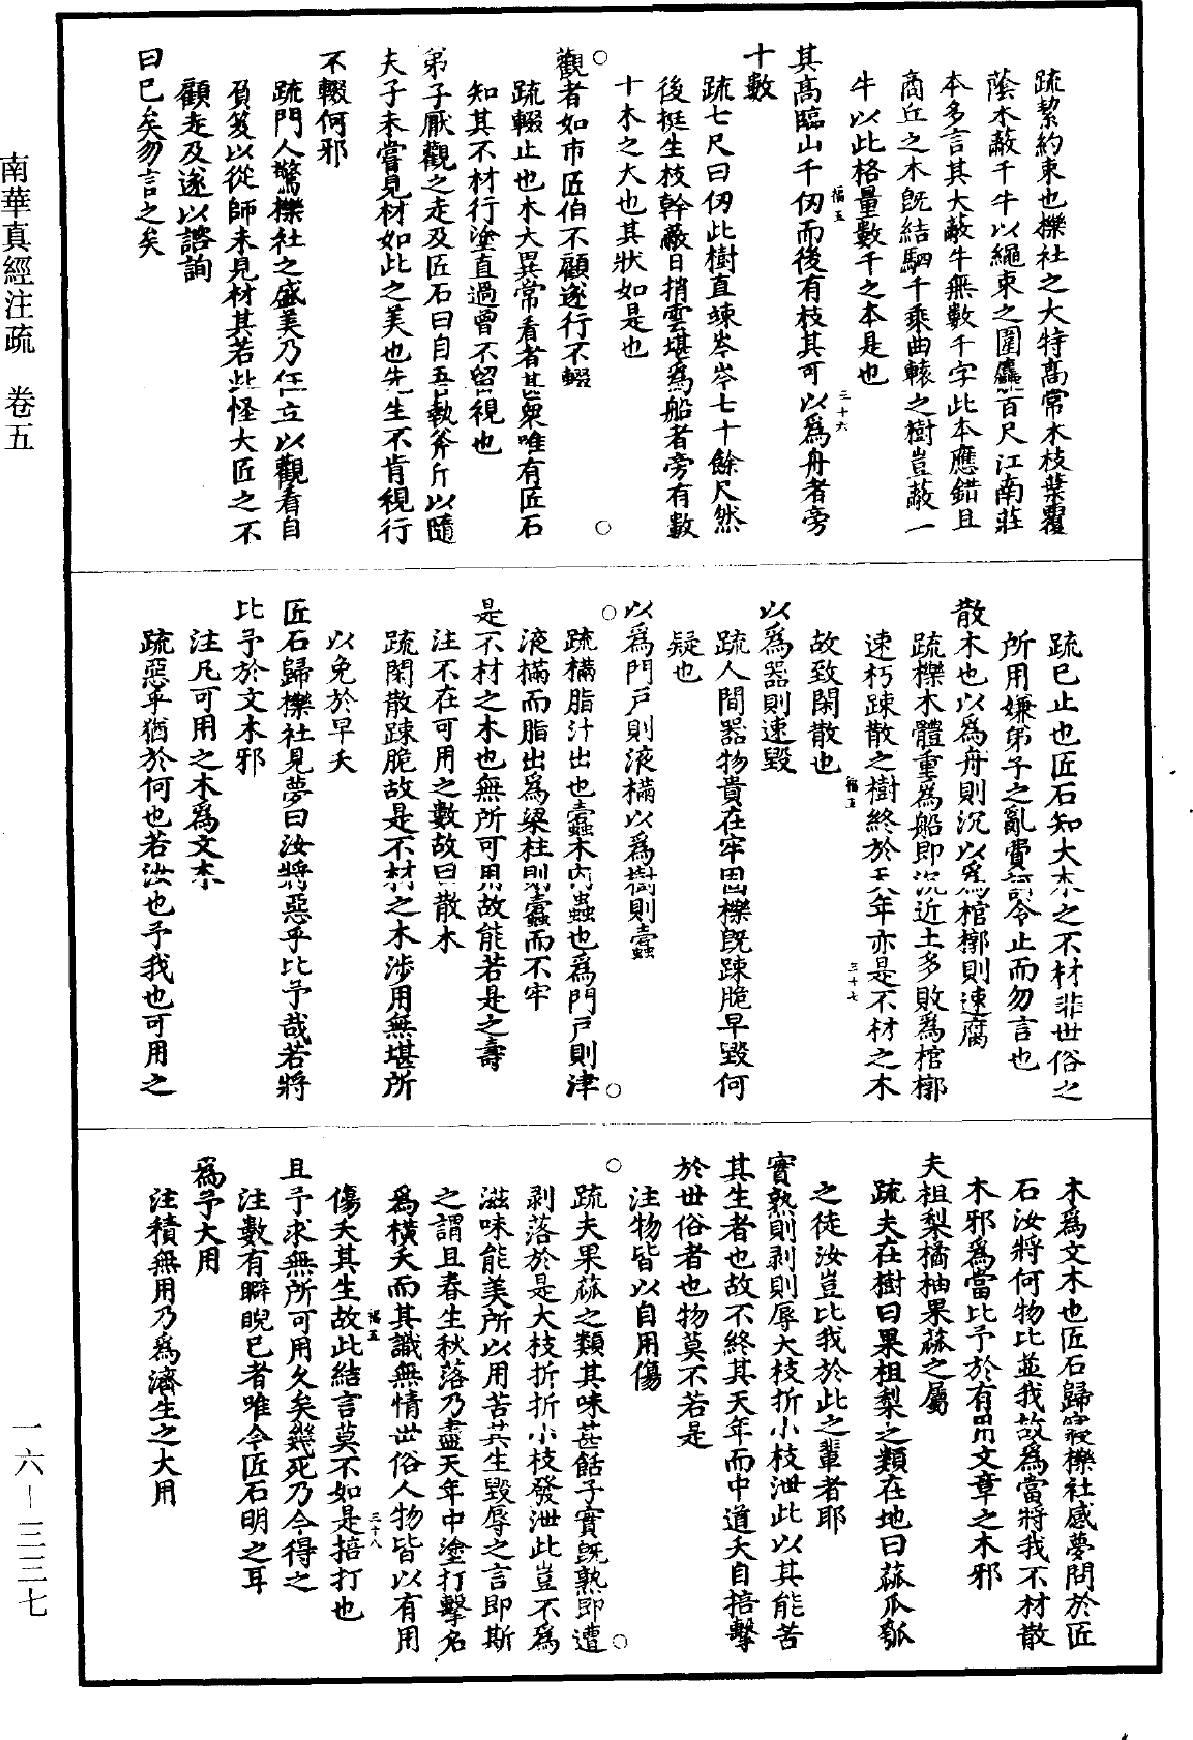 南華真經注疏　卷五
一六—三三七
疏絜約束也櫟社之大特高常木枝葉覆
蔭木蔽千牛以繩束之圍麤百尺江南莊
本多言其大蔽牛無數千字此本應錯且
商丘之木旣結駟千乘曲轅之樹豈蔽一
牛以此格量數千之本是也
福五
三十六
其高臨山千仞而後有枝其可以爲舟者旁
十數
疏七尺曰仞此樹直竦岑岑七十餘尺然
後挺生枝幹蔽日捎雲堪爲船者旁有數
十木之大也其狀如是也
○　○
觀者如市匠伯不顧遂行不輟
疏輟止也木大異常看者甚衆唯有匠石
知其不材行塗直過曾不留視也
弟子厭觀之走及匠石曰自吾執斧斤以隨
夫子未嘗見材如此之美也先生不肯視行
不輟何邪
疏門人驚櫟社之盛美乃住立以觀看自
負笈以從師未見材其若此怪大匠之不
顧走及遂以諮詢
曰已矣勿言之矣
疏已止也匠石知大木之不材非世俗之
所用嫌弟子之亂費訶令止而勿言也
散木也以爲舟則沉以爲棺槨則速腐
疏櫟木體重爲船即沉近土多敗爲棺槨
速朽踈散之樹終於天年亦是不材之木
福五
三十七
故致閑散也
以爲器則速毀
疏人間器物貴在牢固櫟旣踈脆早毀何
疑也
以爲門戸則液樠以爲樹則蠹
○　○
疏樠脂汁出也蠹木內蟲也爲門戸則津
液樠而脂出爲梁柱則蠹而不牢
是不材之木也無所可用故能若是之壽
注不在可用之數故曰散木
疏閑散踈脆故是不材之木涉用無堪所
以免於早夭
匠石歸櫟社見夢曰汝將惡乎比予哉若將
比予於文木邪
注凡可用之木爲文木
疏惡乎猶於何也若汝也予我也可用之
木爲文木也匠石歸寢櫟社感夢問於匠
石汝將何物比並我故爲當將我不材散
木邪爲當比予於有用文章之木邪
夫柤梨橘柚果蓏之屬
疏夫在樹曰果柤梨之類在地曰蓏瓜瓠
之徒汝豈比我於此之輩者耶
實熟則剥則辱大枝折小枝泄此以其能苦
其生者也故不終其天年而中道夭自掊擊
於世俗者也物莫不若是
注物皆以自用傷
○　○
疏夫果蓏之類其味甚餂子實旣熟即遭
剥落於是大枝折折小枝發泄此豈不爲
滋味能美所以用苦其生毀辱之言即斯
之謂且春生秋落乃盡天年中塗打擊名
爲橫夭而其識無情世俗人物皆以有用
福五
三十八
傷夭其生故此結言莫不如是掊打也
且予求無所可用久矣幾死乃今得之
注數有睥睨已者唯今匠石明之耳
爲予大用
注積無用乃爲濟生之大用